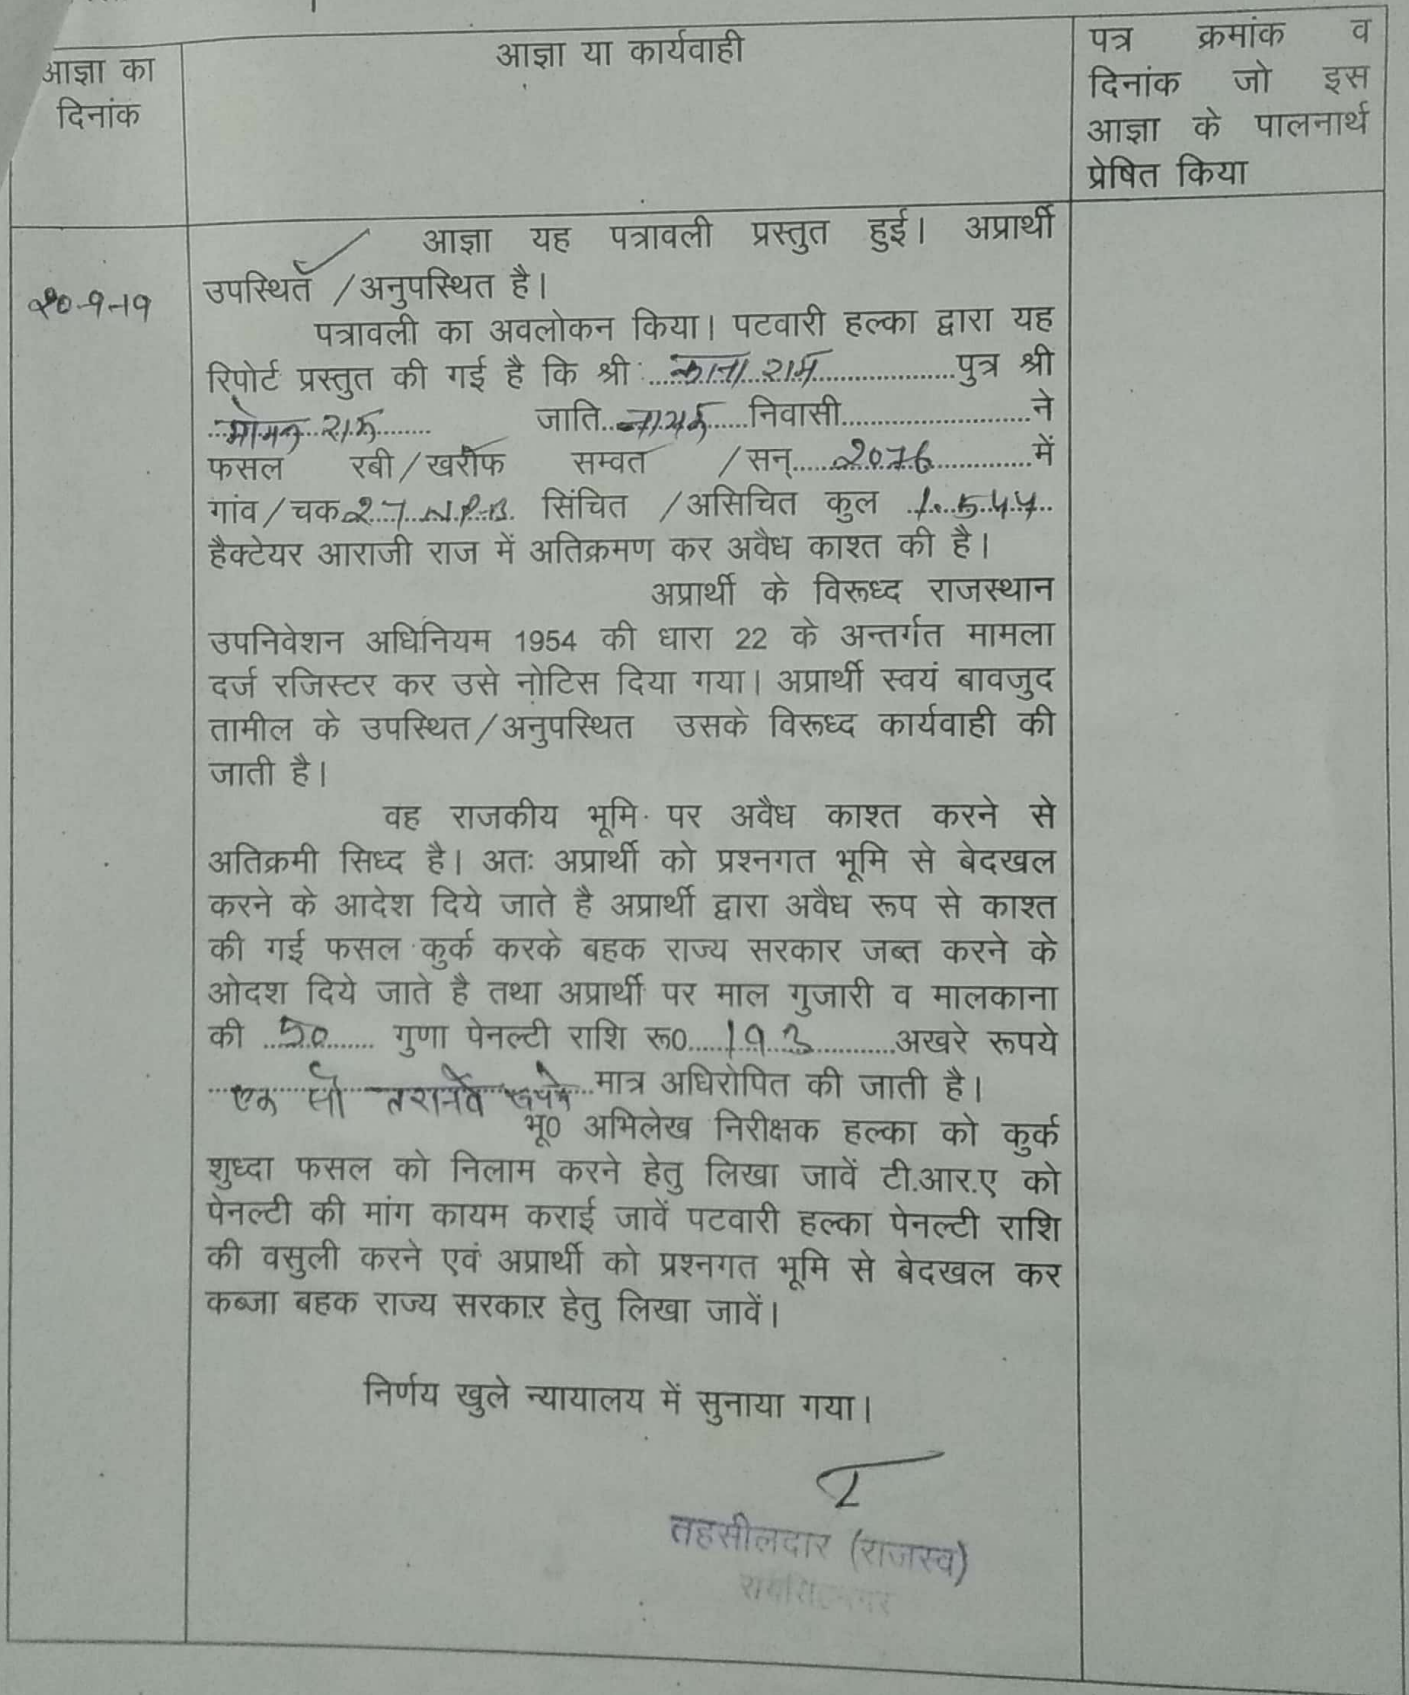 आज्ञा का
दिनांक
आज्ञा या कार्यवाही
पत्र क्रमांक व
दिनांक जो इस
आज्ञा के पालनार्थ
प्रेषित किया
20-9-19
आज्ञा यह पत्रावली प्रस्तुत हुई। अप्रार्थी
उपस्थित /अनुपस्थित है।
पत्रावली का अवलोकन किया। पटवारी हल्का द्वारा यह
रिपोर्ट प्रस्तुत की गई है कि श्री काना राम पुत्र श्री
राम जाति नायक निवासी ने
फसल रबी/खरीफ सम्वत /सन् 2076 में
गांव/चक 27 N.P-B. सिंचित /असिचित कुल 1.544
हैक्टेयर आराजी राज में अतिक्रमण कर अवैध काश्त की है।
अप्रार्थी के विरूध्द राजस्थान
उपनिवेशन अधिनियम 1954 की धारा 22 के अन्तर्गत मामला
दर्ज रजिस्टर कर उसे नोटिस दिया गया। अप्रार्थी स्वयं बावजुद
तामील के उपस्थित/अनुपस्थित उसके विरूध्द कार्यवाही की
जाती है।
वह राजकीय भूमि पर अवैध काश्त करने से
अतिक्रमी सिध्द है। अतः अप्रार्थी को प्रश्नगत भूमि से बेदखल
करने के आदेश दिये जाते है अप्रार्थी द्वारा अवैध रूप से काश्त
की गई फसल कुर्क करके बहक राज्य सरकार जब्त करने के
ओदश दिये जाते है तथा अप्रार्थी पर माल गुजारी व मालकाना
की 50 गुणा पेनल्टी राशि रू0 193 अखरे रूपये
एक सौ तरानवे रूपये मात्र अधिरोपित की जाती है।
भू0 अभिलेख निरीक्षक हल्का को कुर्क
शुध्दा फसल को निलाम करने हेतु लिखा जावें टी.आर.ए को
पेनल्टी की मांग कायम कराई जावें पटवारी हल्का पेनल्टी राशि
की वसुली करने एवं अप्रार्थी को प्रश्नगत भूमि से बेदखल कर
कब्जा बहक राज्य सरकार हेतु लिखा जावें।
निर्णय खुले न्यायालय में सुनाया गया।
तहसीलदार (राजस्व)